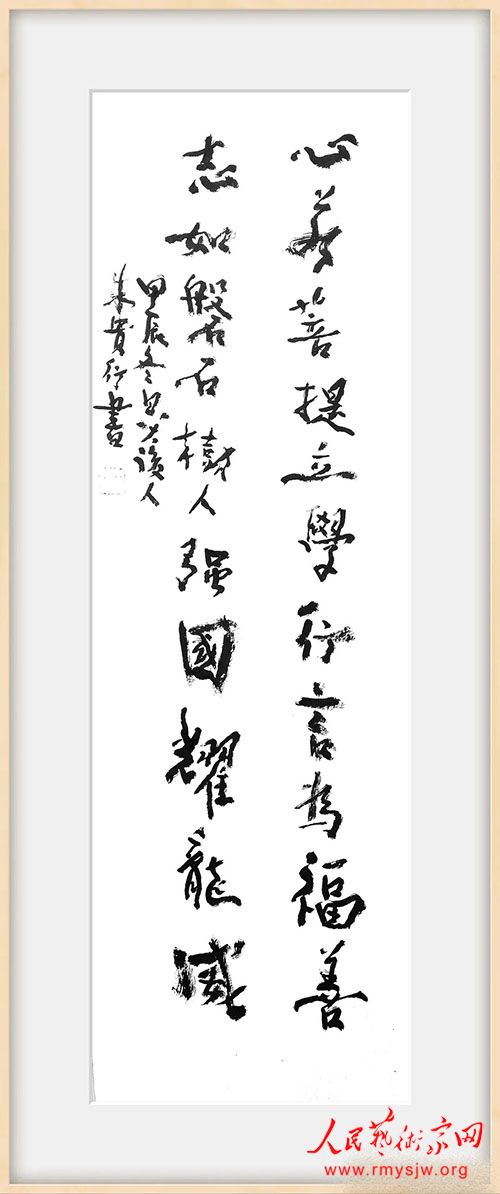 心菩提立學行言為福善
志如磐石樹人强國耀龍威
甲辰冬人
書
人民藝術家网
www.rmysjw.org